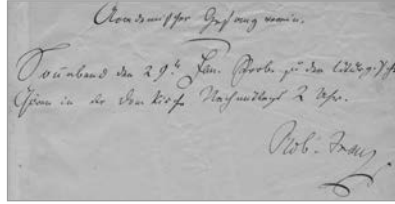 Academischer Gesangverein.
Sonnabend den 29t. Jan. Probe zu den liturgisch
Chören in der Domkirche Nachmittags 2 Uhr.
Rob. Franz